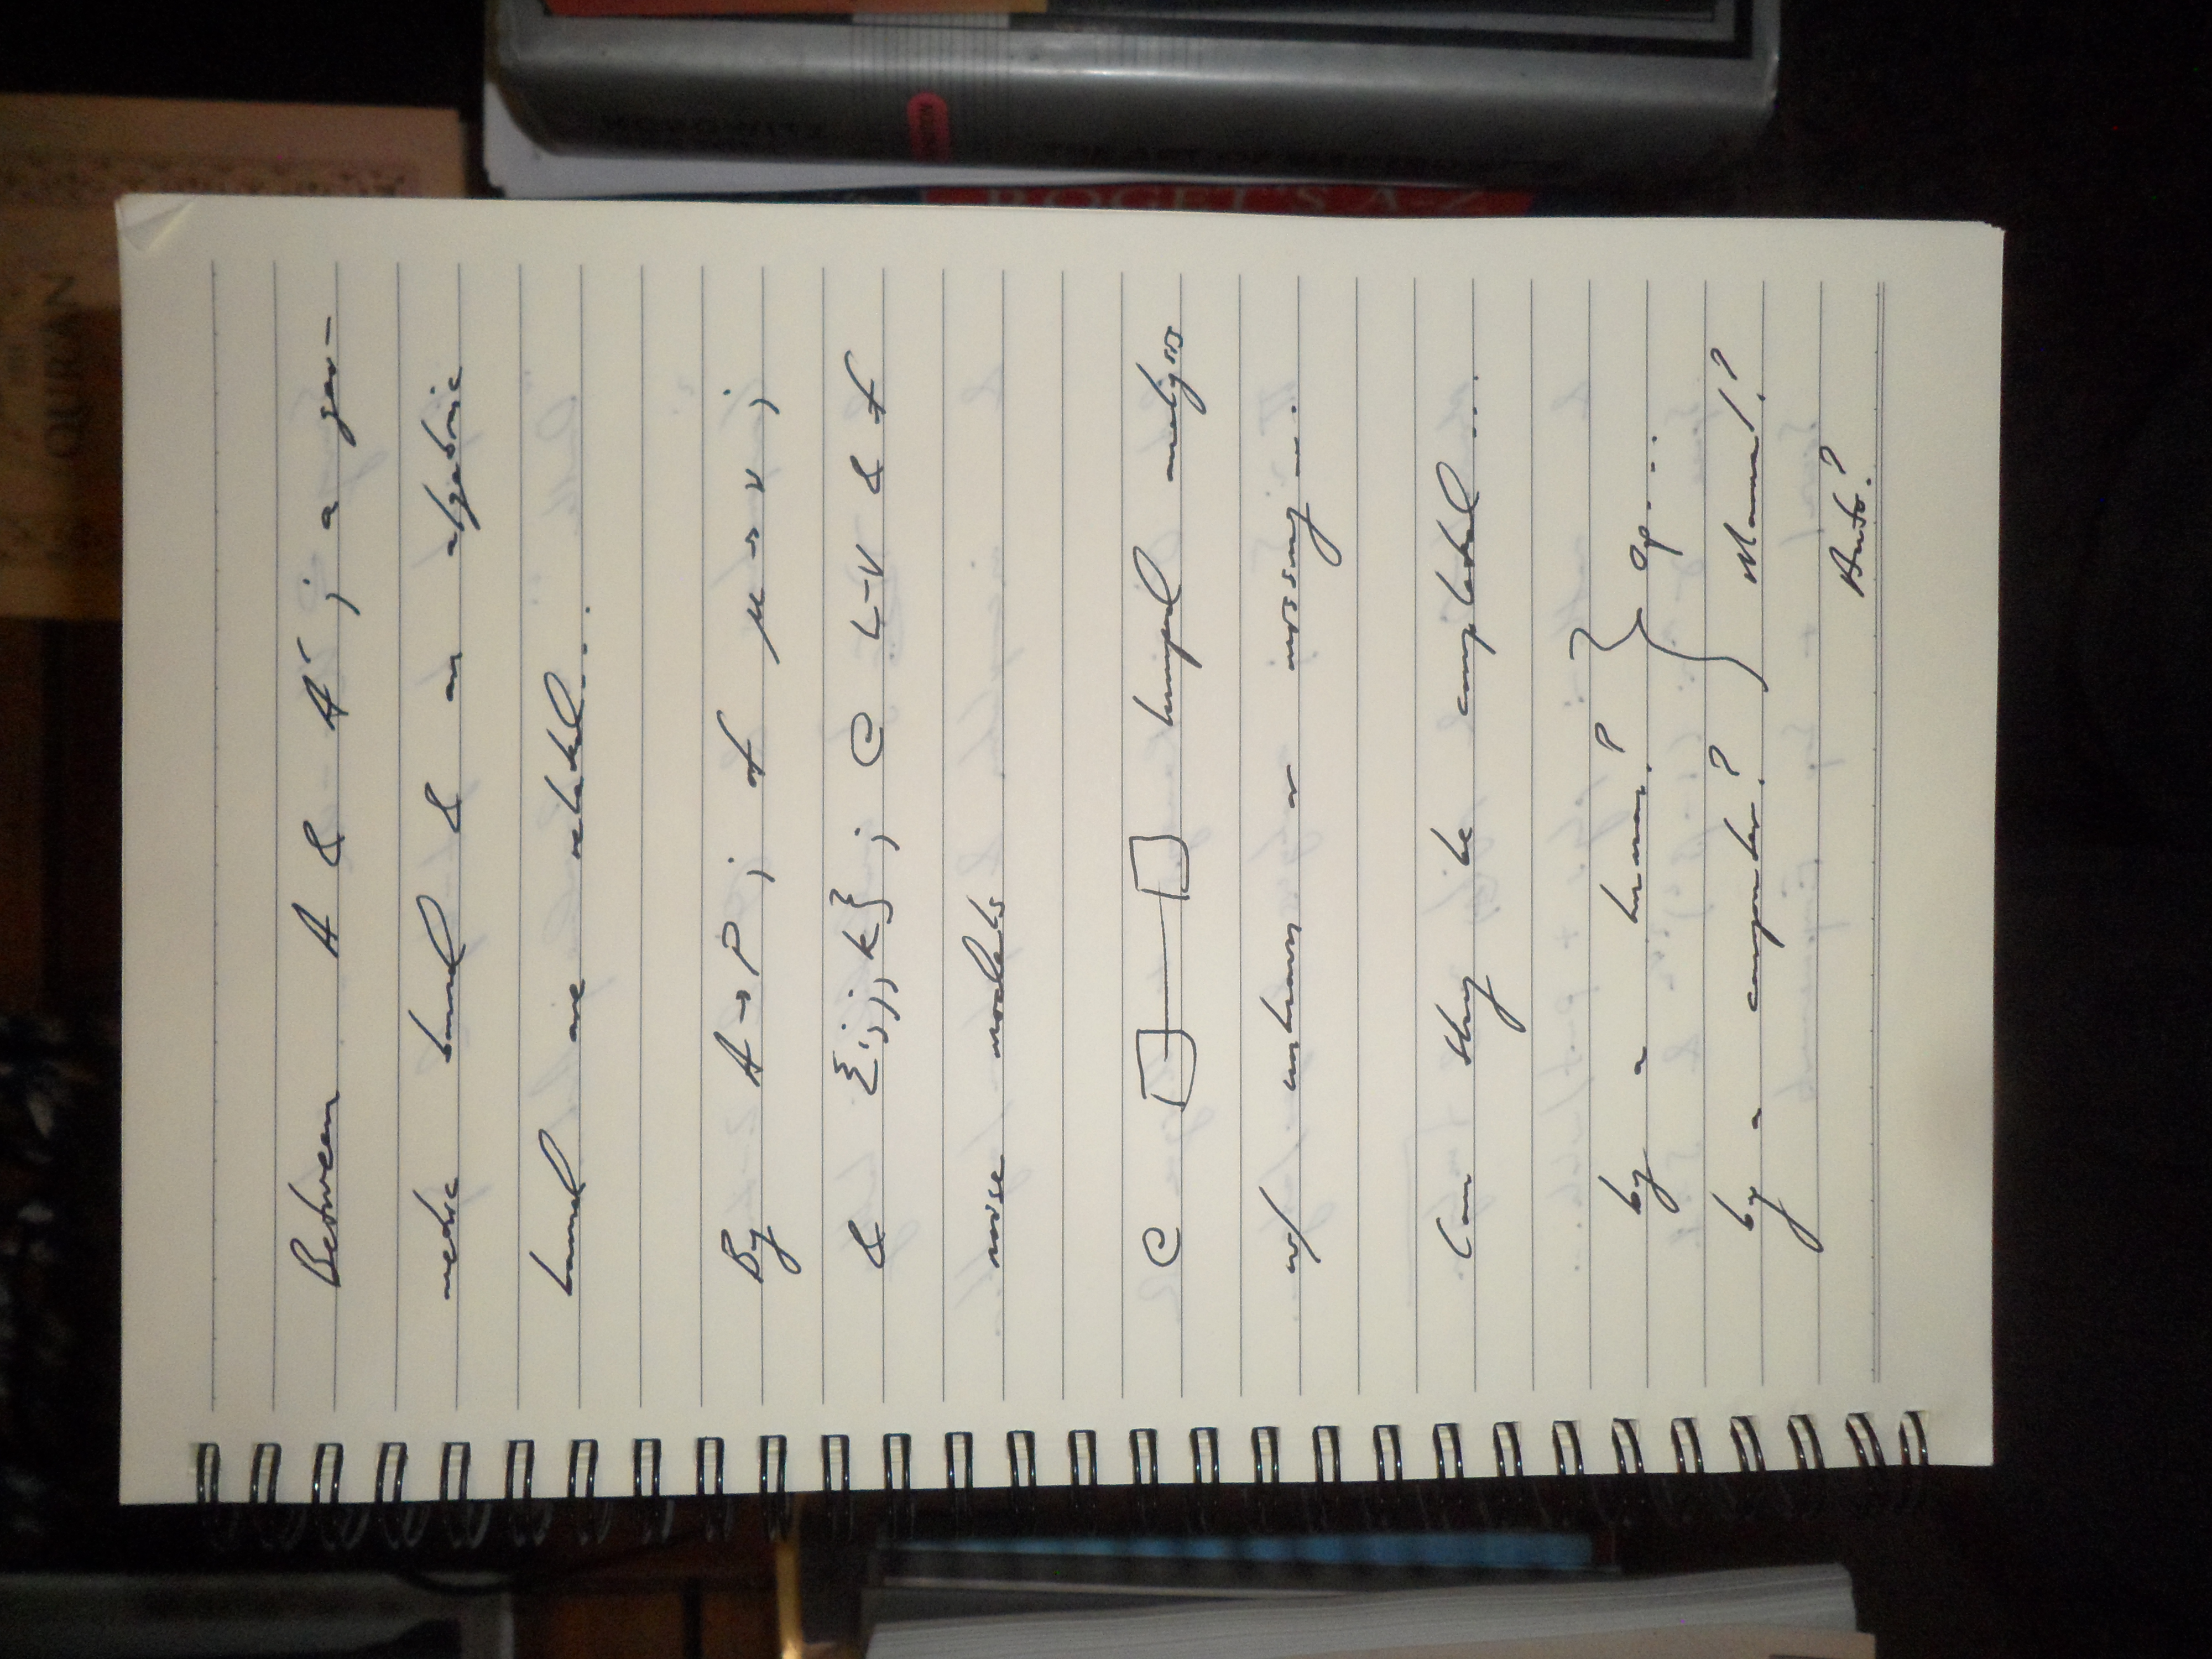 Between A & A'; a geo-
metric bound & an algebraic
bound are related...
By A→P; of μ→ν;
& {i,j,k}; @ L-V & f
noise models
@ lumped analysis
w/ unknown or missing...
Can they be completed...
by a human? } Op....
by a computer? } Manual?
Auto?
QURAN
ROGET'S A-Z